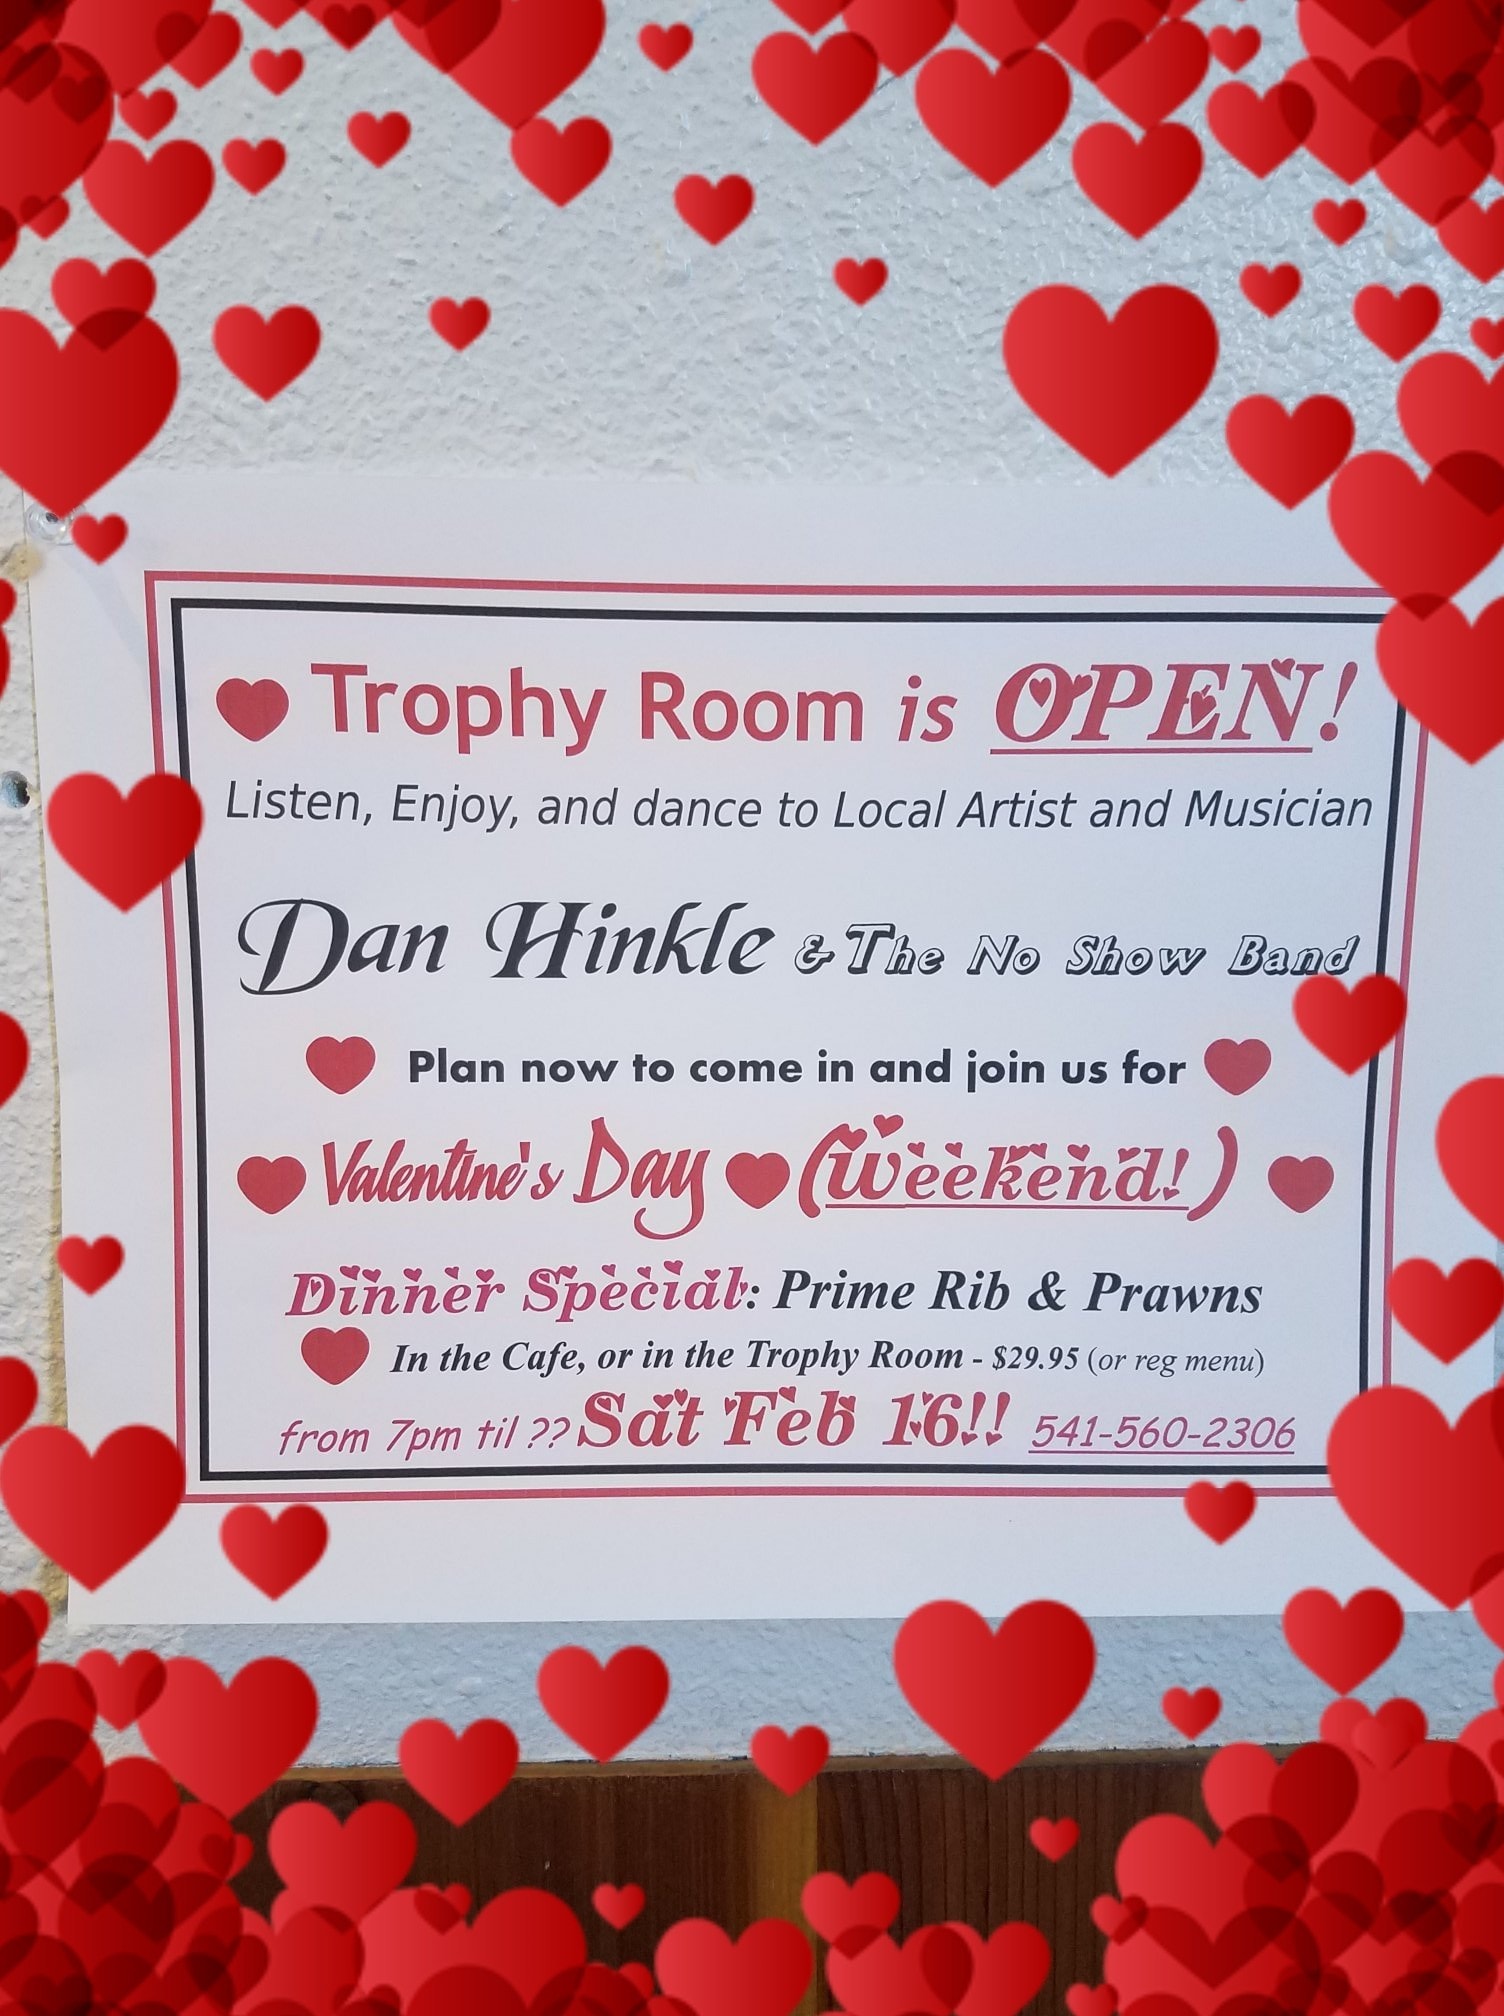 Trophy Room is OPEN!
Listen, Enjoy, and dance to Local Artist and Musician
Dan Hinkle & The No Show Band
Plan now to come in and join us for
Valentine's Day (Weekend!)
Dinner Special: Prime Rib & Prawns
In the Cafe, or in the Trophy Room - $29.95 (or reg menu)
from 7pm til ?? Sat Feb 16!! 541-560-2306